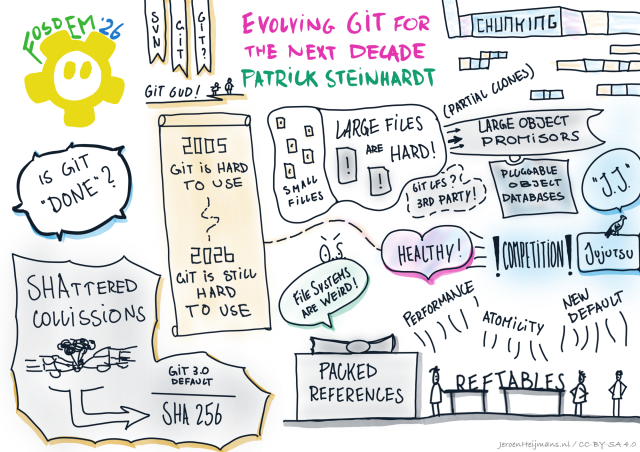 FOSDEM '26
SVN
GIT
GIT?
GIT GUD!
EVOLVING GIT FOR
THE NEXT DECADE
PATRICK STEINHARDT
CHUNKING
IS GIT
"DONE"?
2005
GIT IS HARD
TO USE
2026
GIT IS STILL
HARD
TO USE
SMALL
FILLES
LARGE FILES
ARE HARD!
!
!
(PARTIAL CLONES)
LARGE OBJECT
PROMISORS
GIT LFS??
3RD PARTY!
PLUGGABLE
OBJECT
DATABASES
"JJ"
HEALTHY!
!COMPETITION!
JUJUTSU
O.S
FILE SYSTEMS
ARE WEIRD!
SHATTERED
COLLISSIONS
GIT 3.0
DEFAULT
SHA 256
PACKED
REFERENCES
PERFORMANCE
ATOMICITY
NEW
DEFAULT
REFTABLES
JeroenHeijmans.nl / CC-BY-SA 4.0